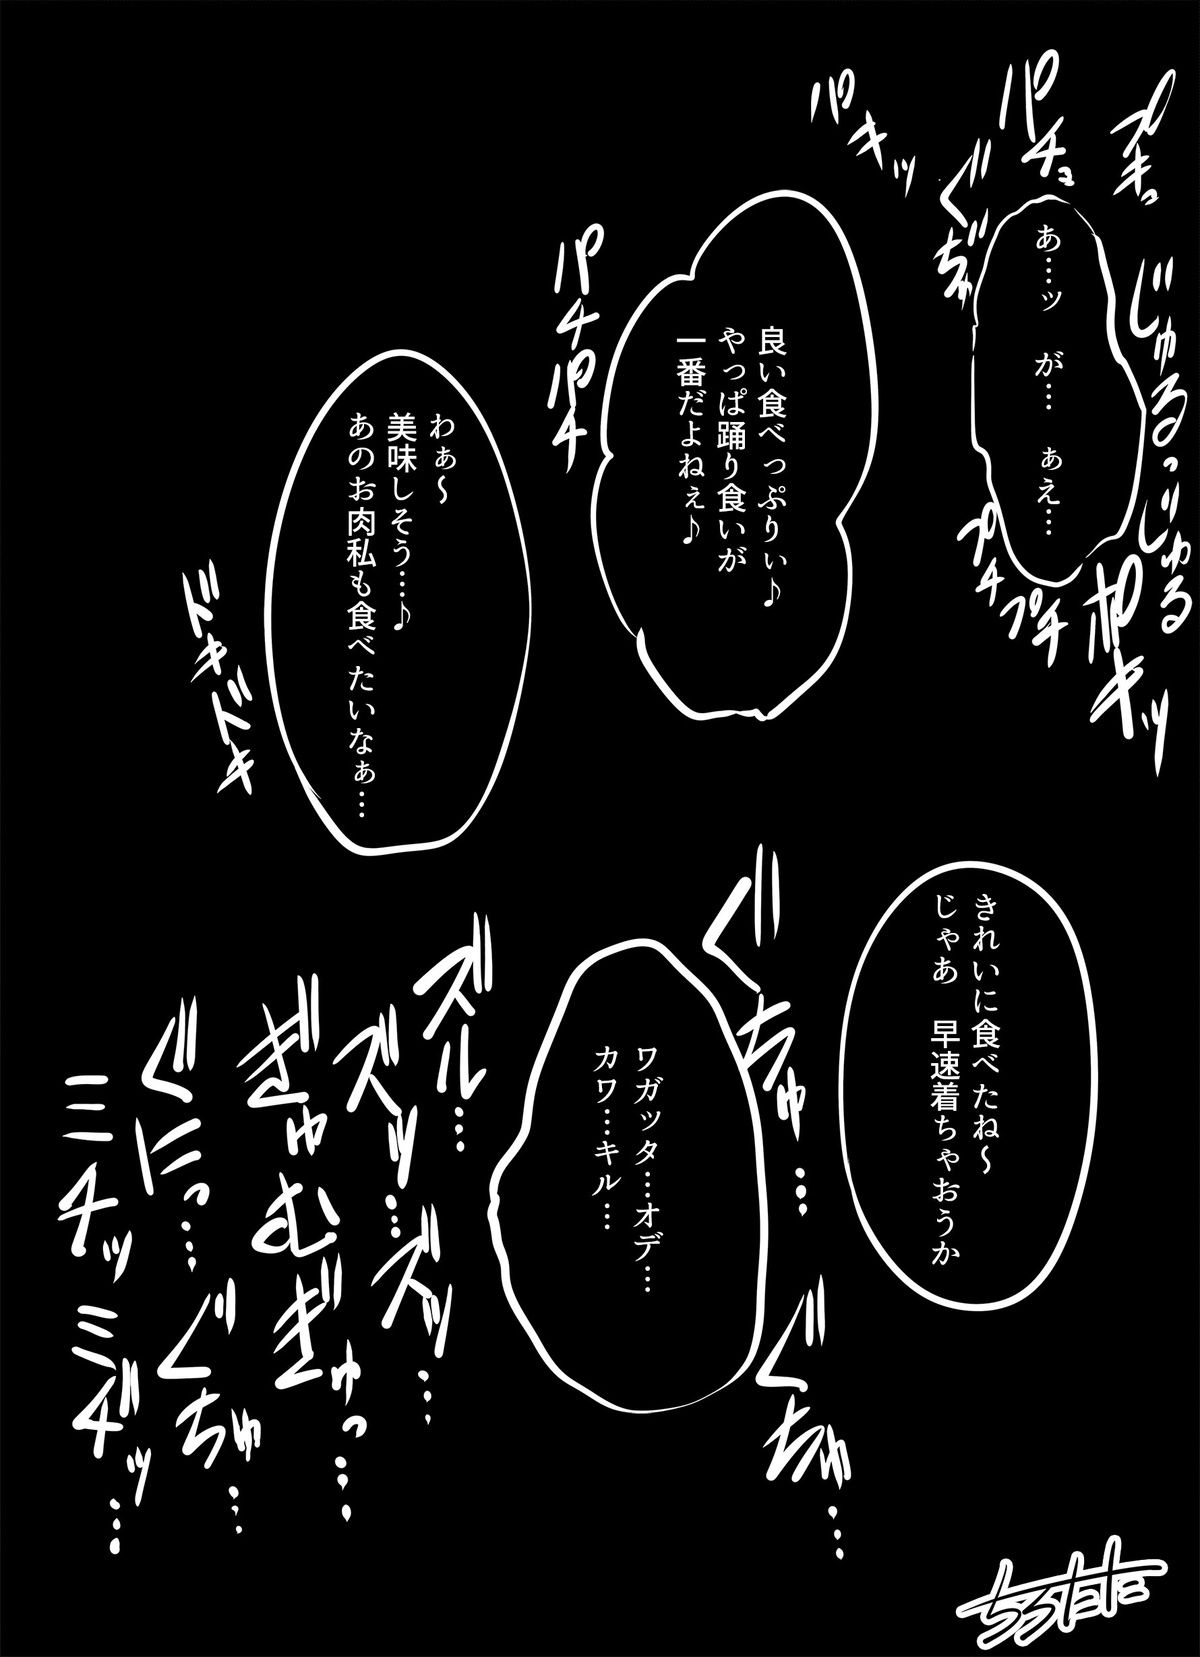 プキュ
パチュ
パキッ
ぐぢゅ
じゅるっじゅる
あ…ッ　が…　ぁえ…
プチ
プチ
ポキッ
良い食べっぷりぃ♪
やっぱ踊り食いが
一番だよねぇ♪
パチパチ
わぁ～
美味しそう…♪
あのお肉私も食べたいなぁ…
ドキドキ
きれいに食べたね～
じゃあ　早速着ちゃおうか
ぐちゅ…
ぐちゅ…
ワガッタ…オデ…
カワ…キル…
ズル…
ズッ…ズッ…
ぎゅむぎゅっ…
ぐにっ…ぐちゅ…
ミチッミヂッ…
ちろたた